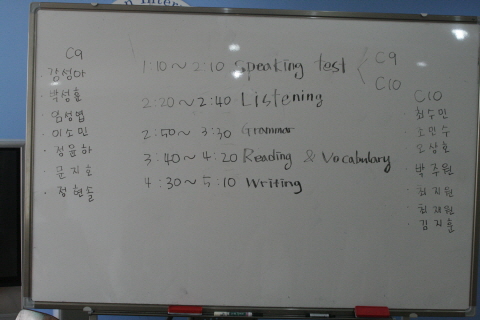 C9
강성아
박성훈
이소민
정윤하
문지호
정현솔
1:10~2:10 Speaking test
C9
C10
2:20~2:40 Listening
2:50~3:30 Grammar
3:40~4:20 Reading & Vocabulary
4:30~5:10 Writing
C10
최수민
소민수
오상훈
박주원
최지원
최재원
김지훈